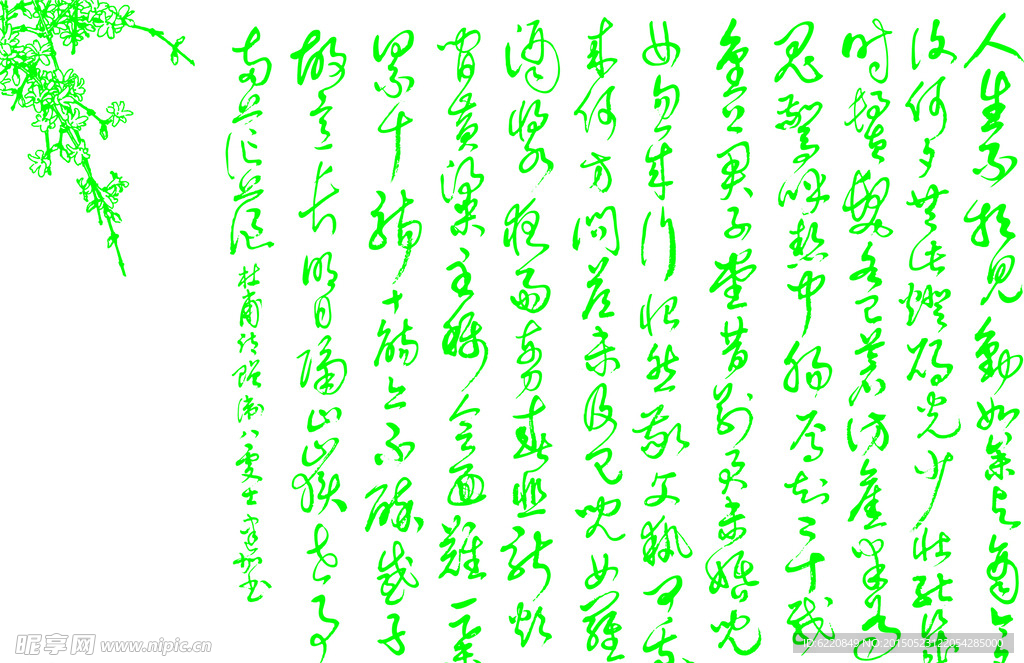 人生不相見動如參與商今夕
復何夕共此燈燭光少壯能幾
時鬢髮各已蒼訪舊半為
鬼驚呼熱中腸焉知二十載
重上君子堂昔別君未婚兒
女忽成行怡然敬父執問我
來何方問答未及已兒女羅
酒漿夜雨剪春韭新炊
間黃粱主稱會面難一舉
累十觴十觴亦不醉感子
故意長明日隔山嶽世事
兩茫茫
杜甫詩贈衛八處士書
昵享网 www.nipic.cn
ID:6220849 NO:20150523122054285000